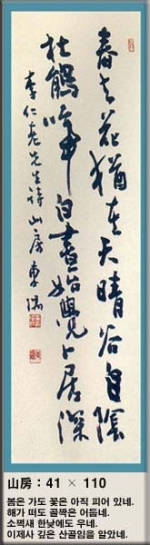 春去花猶在天晴谷自陰
杜鵑啼白晝始覺卜居深
李仁老先生詩 山房 東
山房 : 41 × 110
봄은 가도 꽃은 아직 피어 있네.
해가 떠도 골짝은 어둡네.
소쩍새 한낮에도 우네.
이제사 깊은 산골임을 알았네.